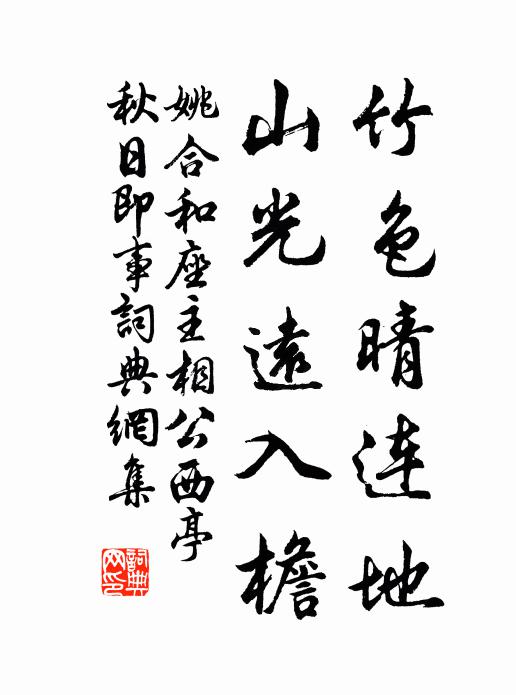 竹色晴连地
山光遠入檐
姚合和座主相公西亭
秋日即事詞典網集
詞典网印